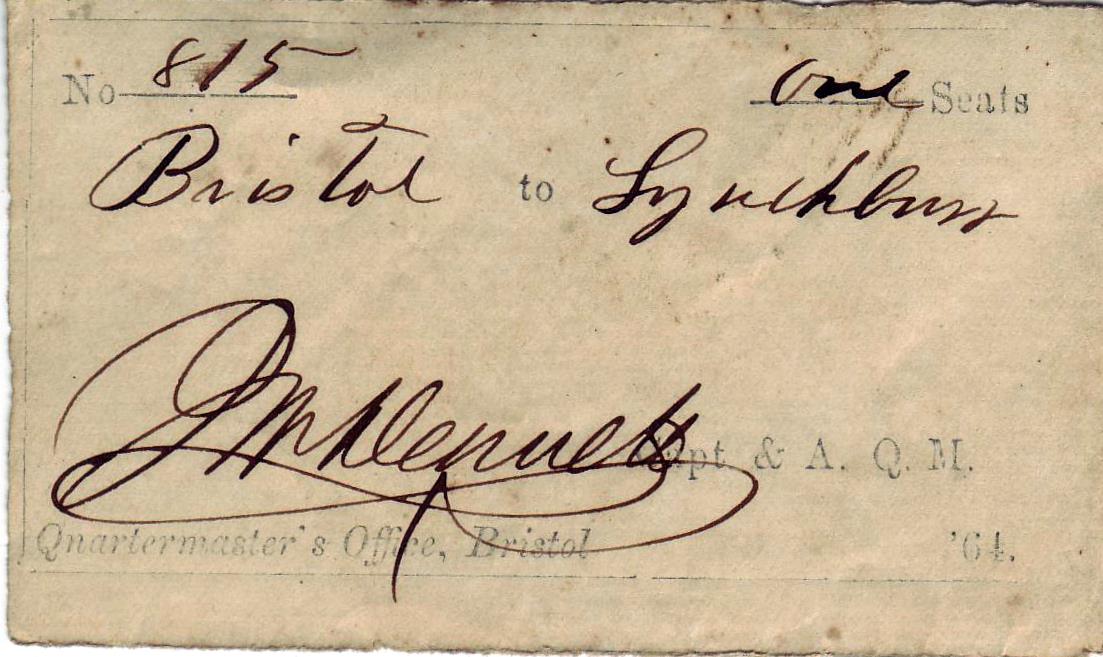 No 815 One Seats
Bristol to Lynchburg
Capt & A. Q. M.
Quartermaster's Office, Bristol '64.